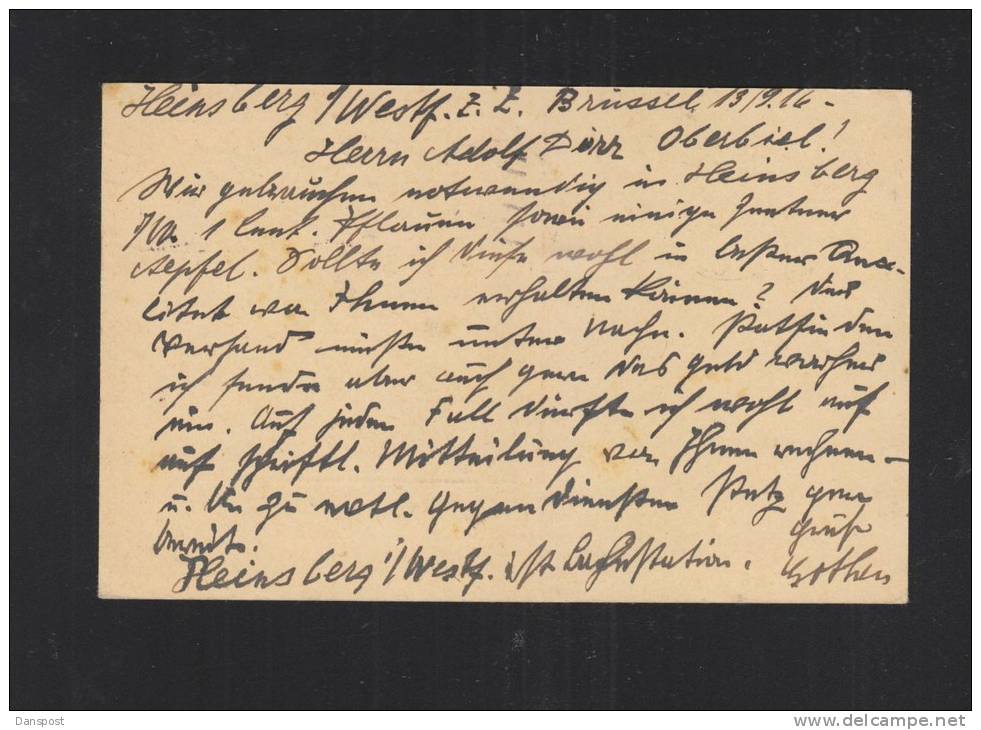 Heinsberg i/Westf. z. Z. Brüssel, 13/9.16 -
Herrn Adolf Dörr Oberbiel!
Wir gebrauchen notwendig in Heinsberg
1 Cent. Pflaumen sowie einige Zentner
Aepfel. Sollte ich diese wohl in bester Qua-
lität von Ihnen erhalten können? Der
Versand müßte unter Nachn. stattfinden
ich sende aber auch gern das Geld vorher
ein. Auf jeden Fall dürfte ich wohl auf
auf schriftl. Mitteilung von Ihnen rechnen -
u. bin zu evtl. Gegendiensten stets gern
bereit. Gruß
Heinsberg i/Westf. ist Bahnstation.
Danspost
www.delcampe.net